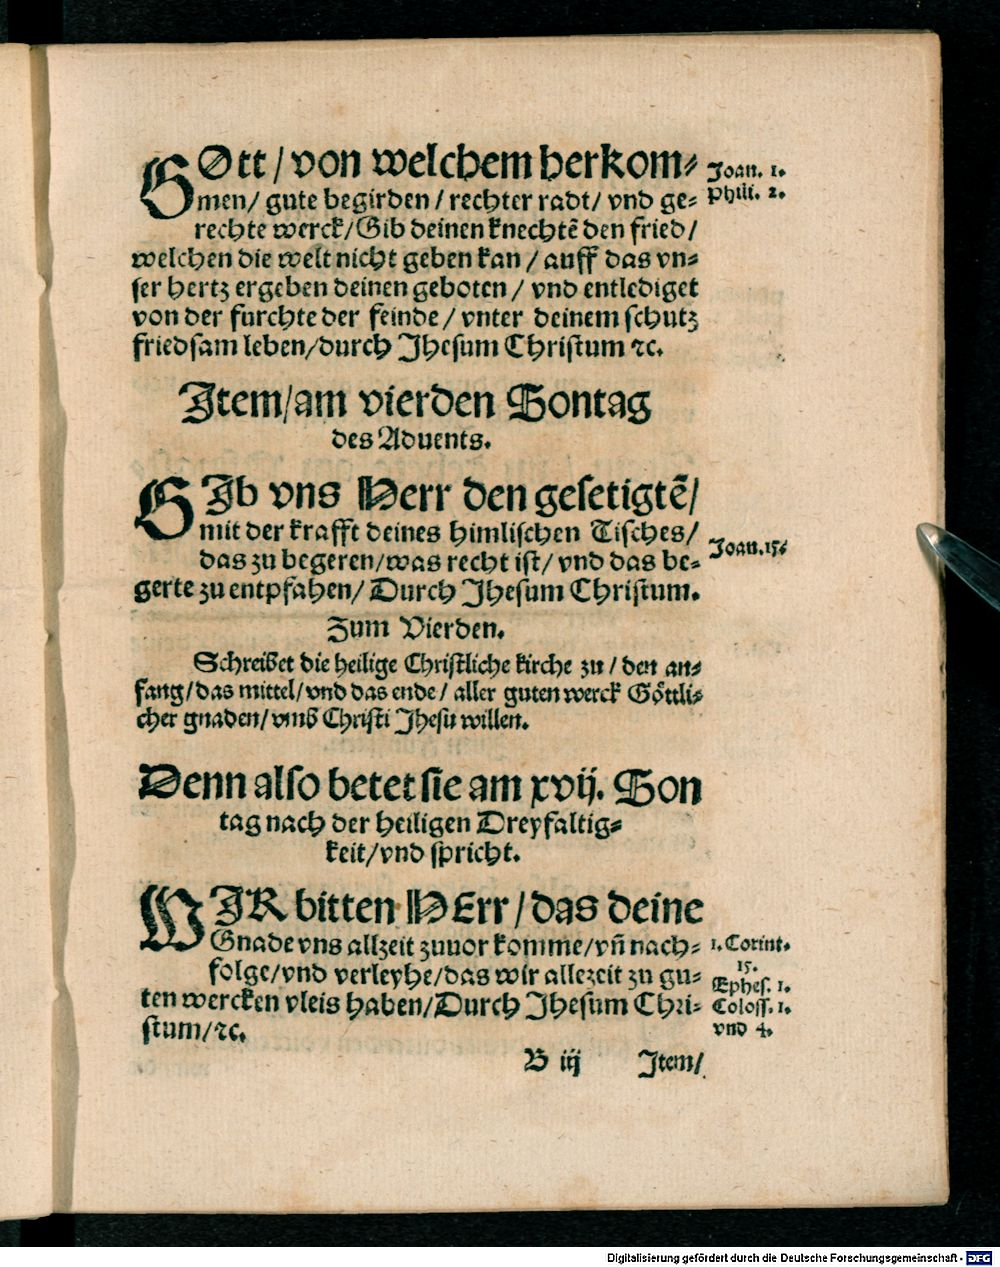 GOtt / von welchem herkom⸗
men / gute begirden / rechter radt / vnd ge⸗
rechte werck / Gib deinen knechtẽ den fried /
welchen die welt nicht geben kan / auff das vn⸗
ser hertz ergeben deinen geboten / vnd entlediget
von der furchte der feinde / vnter deinem schutz
friedsam leben / durch Jhesum Christum ꝛc.
Joan. 1.
Phili. 2.
Item / am vierden Sontag
des Aduents.
GIb vns Herr den gesetigtẽ /
mit der krafft deines himlischen Tisches /
das zu begeren / was recht ist / vnd das be⸗
gerte zu entpfahen / Durch Jhesum Christum.
Joan. 15.
Zum Vierden.
Schreibet die heilige Christliche kirche zu / den an⸗
fang / das mittel / vnd das ende / aller guten werck Göttli⸗
cher gnaden / vmb Christi Jhesu willen.
Denn also betet sie am xvij. Son
tag nach der heiligen Dreyfaltig⸗
keit / vnd spricht.
WIR bitten HErr / das deine
Gnade vns allzeit zuuor komme / vñ nach⸗
folge / vnd verleyhe / das wir allezeit zu gu⸗
ten wercken vleis haben / Durch Jhesum Chri⸗
stum / ꝛc.
1. Corint.
15.
Ephes. 1.
Coloss. 1.
vnd 4.
B iij Item /
Digitalisierung gefördert durch die Deutsche Forschungsgemeinschaft - DFG